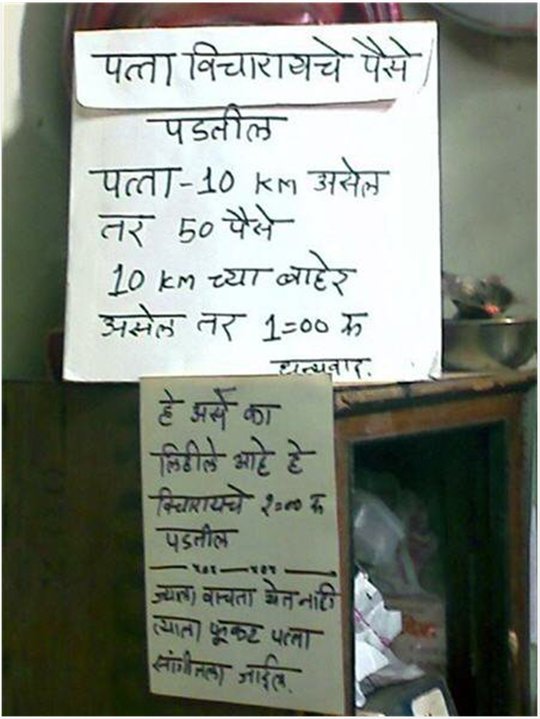 पत्ता विचारायचे पैसे
पडतील
पत्ता - 10 KM असेल
तर 50 पैसे
10 KM च्या बाहेर
असेल तर 1=00 रू
धन्यवाद.
हे असे का
लिहीले आहे हे
विचारायचे 2=00 रू
पडतील
ज्याला वाचता येत नाही
त्याला फूकट पत्ता
सांगीतला जाईल.